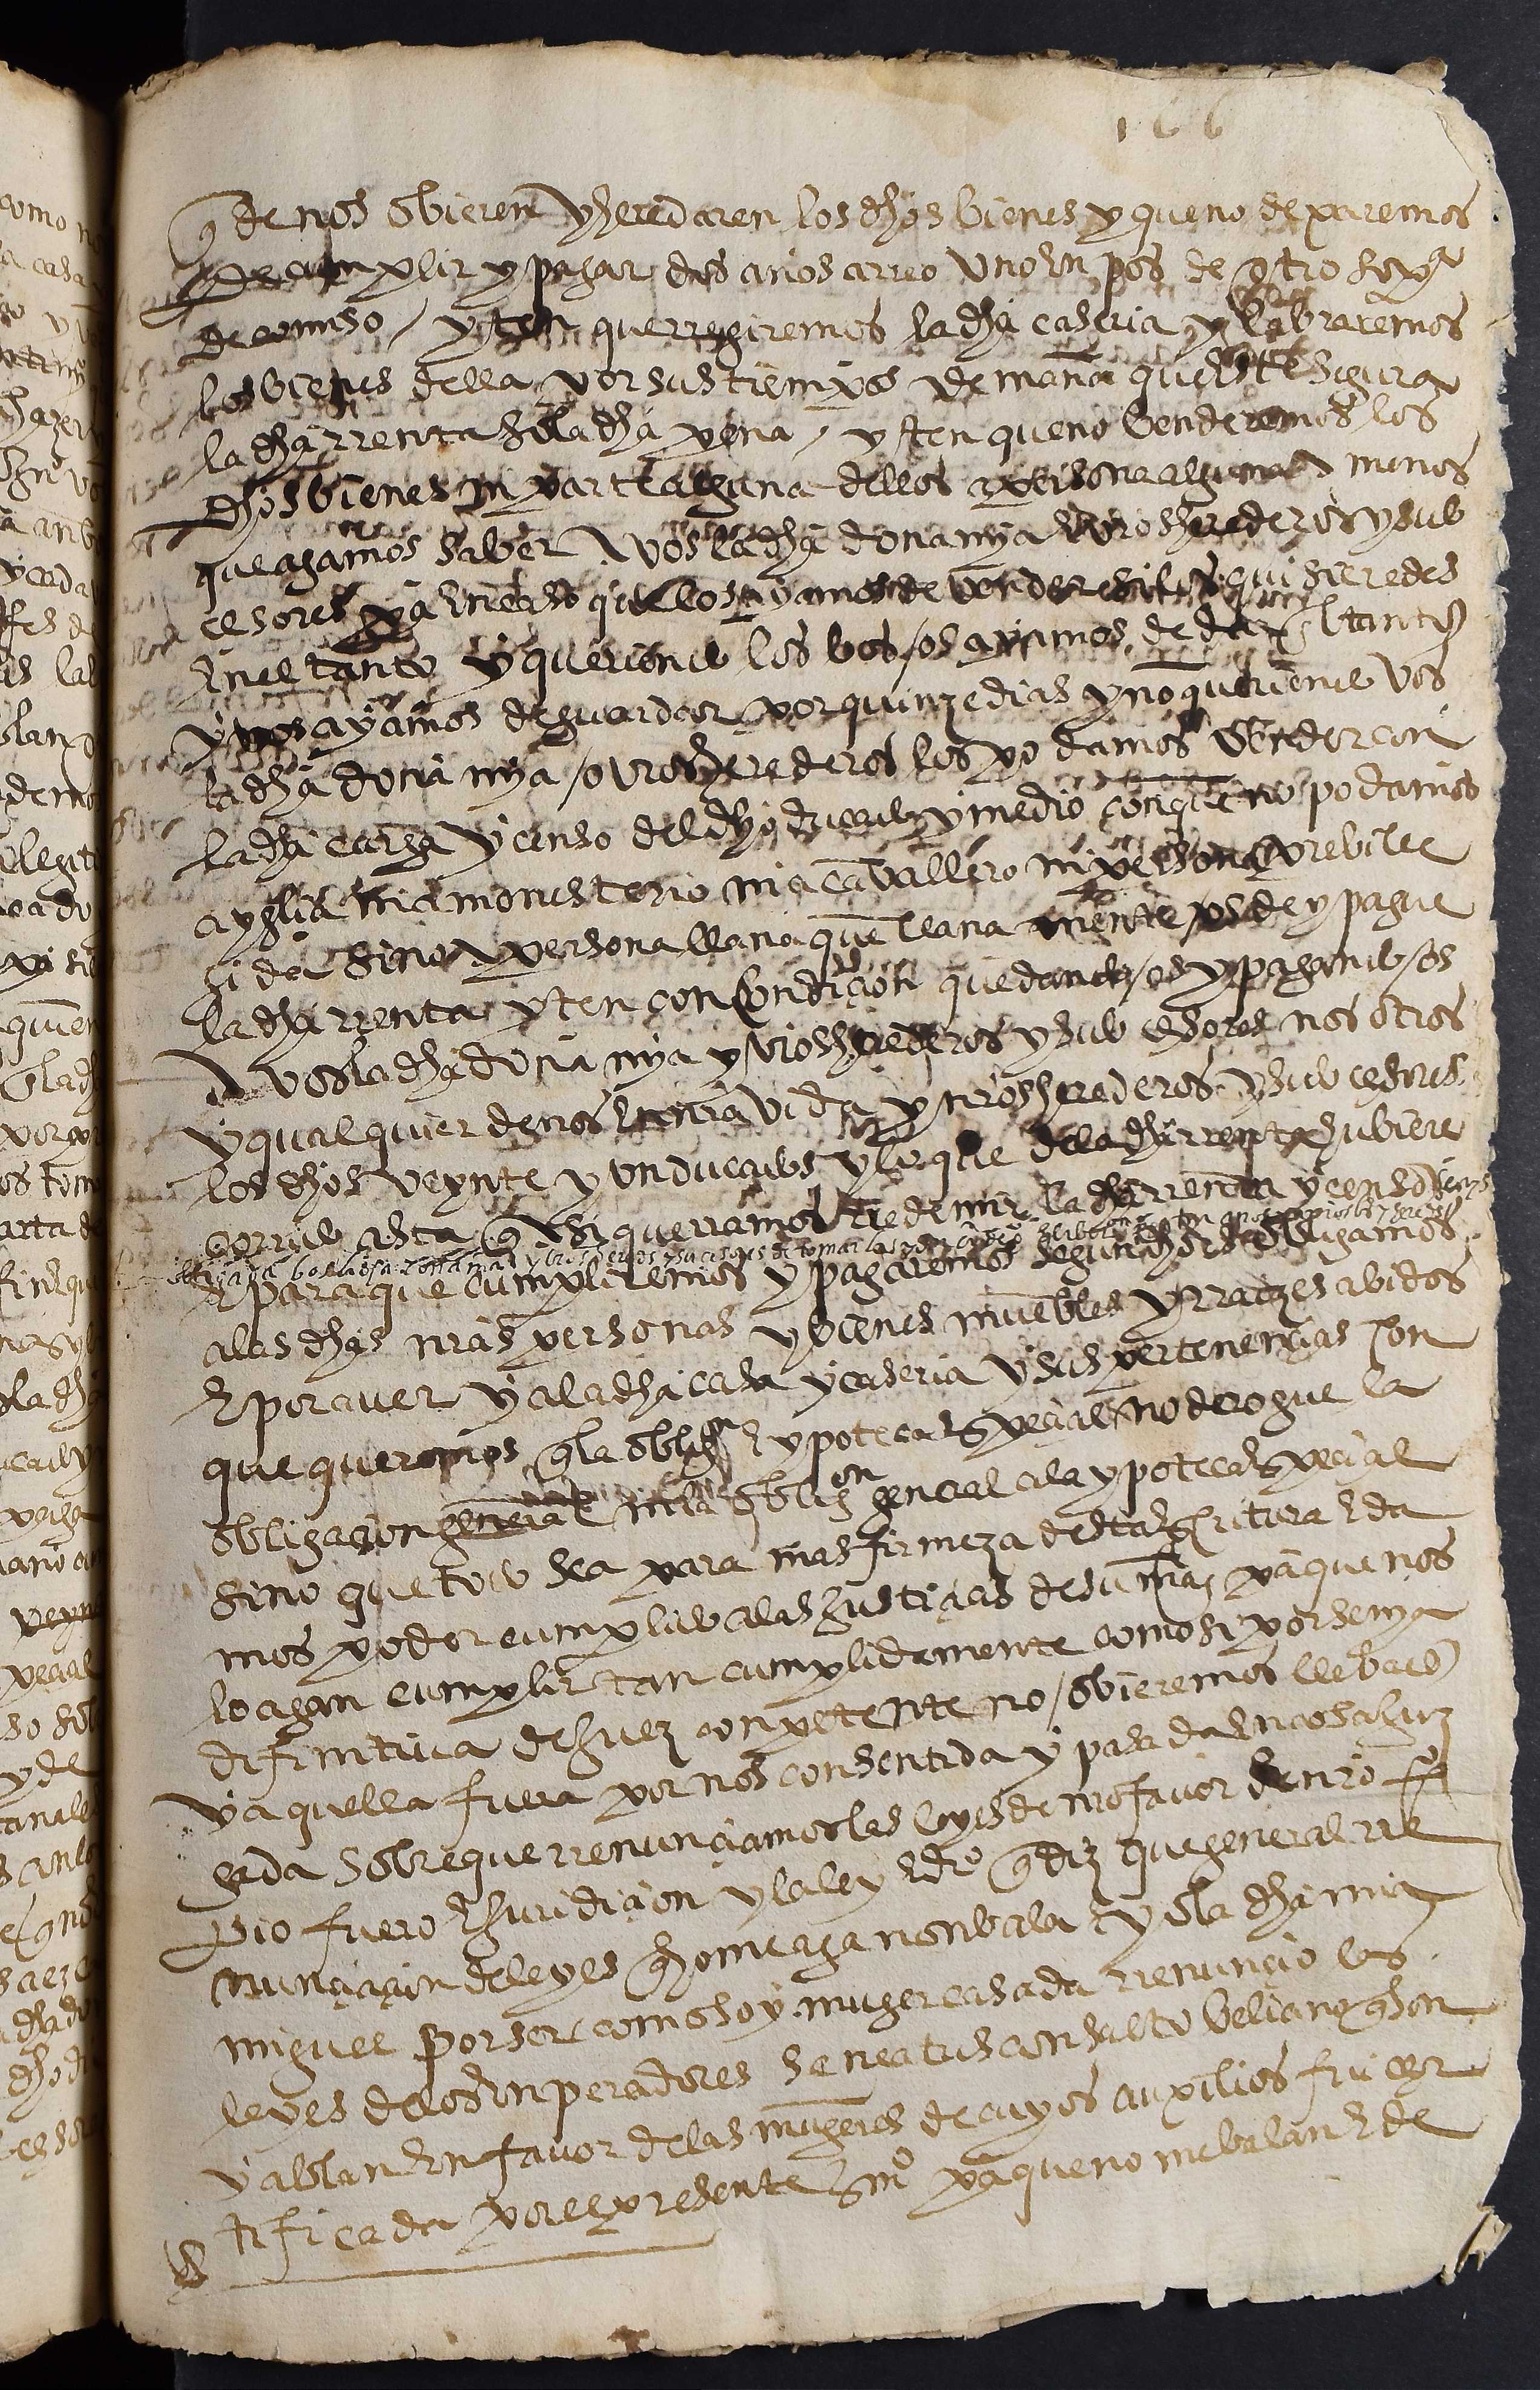 166
q de nos obieren y heredaren los dhos bienes y que no dexaremos
de cumplir y pagar dos años arreo uno en pos de otro so pa
de comiso / yten que rregiremos la dha caseria y labraremos
los bienes della por sus tiempos de mana que este segura
la dha rrenta so la dha pena / yten que no benderemos los
dhos bienes ni parte alguna dellos a persona alguna a menos
que agamos saber a vos la dha doña mya e vros herederos y sub
cesores pa en caso que los ayamos de vender si los quisieredes
en el tanto y queriendo los vos / os ayamos de dar el tanto
y nos ayamos de guardar por quinze dias y no queriendo vos
la dha doña mya / o vros herederos los podamos vender con
la dha carga y censo del dho ducado y medio con que no podamos
a yglia ni a monesterio ni a cavallero ni persona previlee
jida sino a persona llana que llana mente os de y pague
la dha rrenta yten con condiçion que dando / os y pagando / os
a vos la dha doña mya y vros herederos y subcesores nos otros
y qualquier de nos en nra vida y nros herederos y subcesores
los dhos veynte y un ducados y lo que de la dha rrenta hubiere
corrido asta q asi querramos rredemir la dha rrenta y censo
obligada vos la dha doña mya y vros herederos y sucesores de tomarlos
E para que cumpliremos y pagaremos segun dho es obligamos
a las dhas nras personas y bienes muebles y rraizes abidos
E por aver y a la dha casa y caseria y sus pertenençias con
que queremos q la obligon E ypoteca espeçial no derogue la
obligaçion general ni la obligon general a la ypoteca espeçial
sino que todo sea para mas firmeza desta escritura E da
mos poder cumplido a las justiçias de su mag pa que nos
lo agan cumplir tan cumplidamente como si por senya
difinitiva de juez conpetente no / obieremos llebado
y aquella fuera por nos consentida y pasada en cosa juz
gada sobre que rrenunçiamos las leyes de nro favor e nro pro
pio fuero E juridiçion y la ley e dro q diz que general rre
nunçiaçion de leyes q home aga non bala E yo la dha mia
miguel por ser como soy muger casada rrenunçio las
leyes de los enperadores seneatus consulto beliano q son
y ablan en favor de las mugeres de cuyos auxilios fui çer
tificada por el presente esno pa que no me balan E de